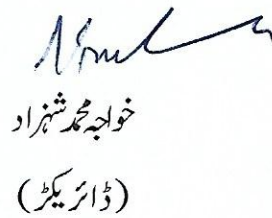 خواجہ محمد شہزاد
(ڈائریکٹر)